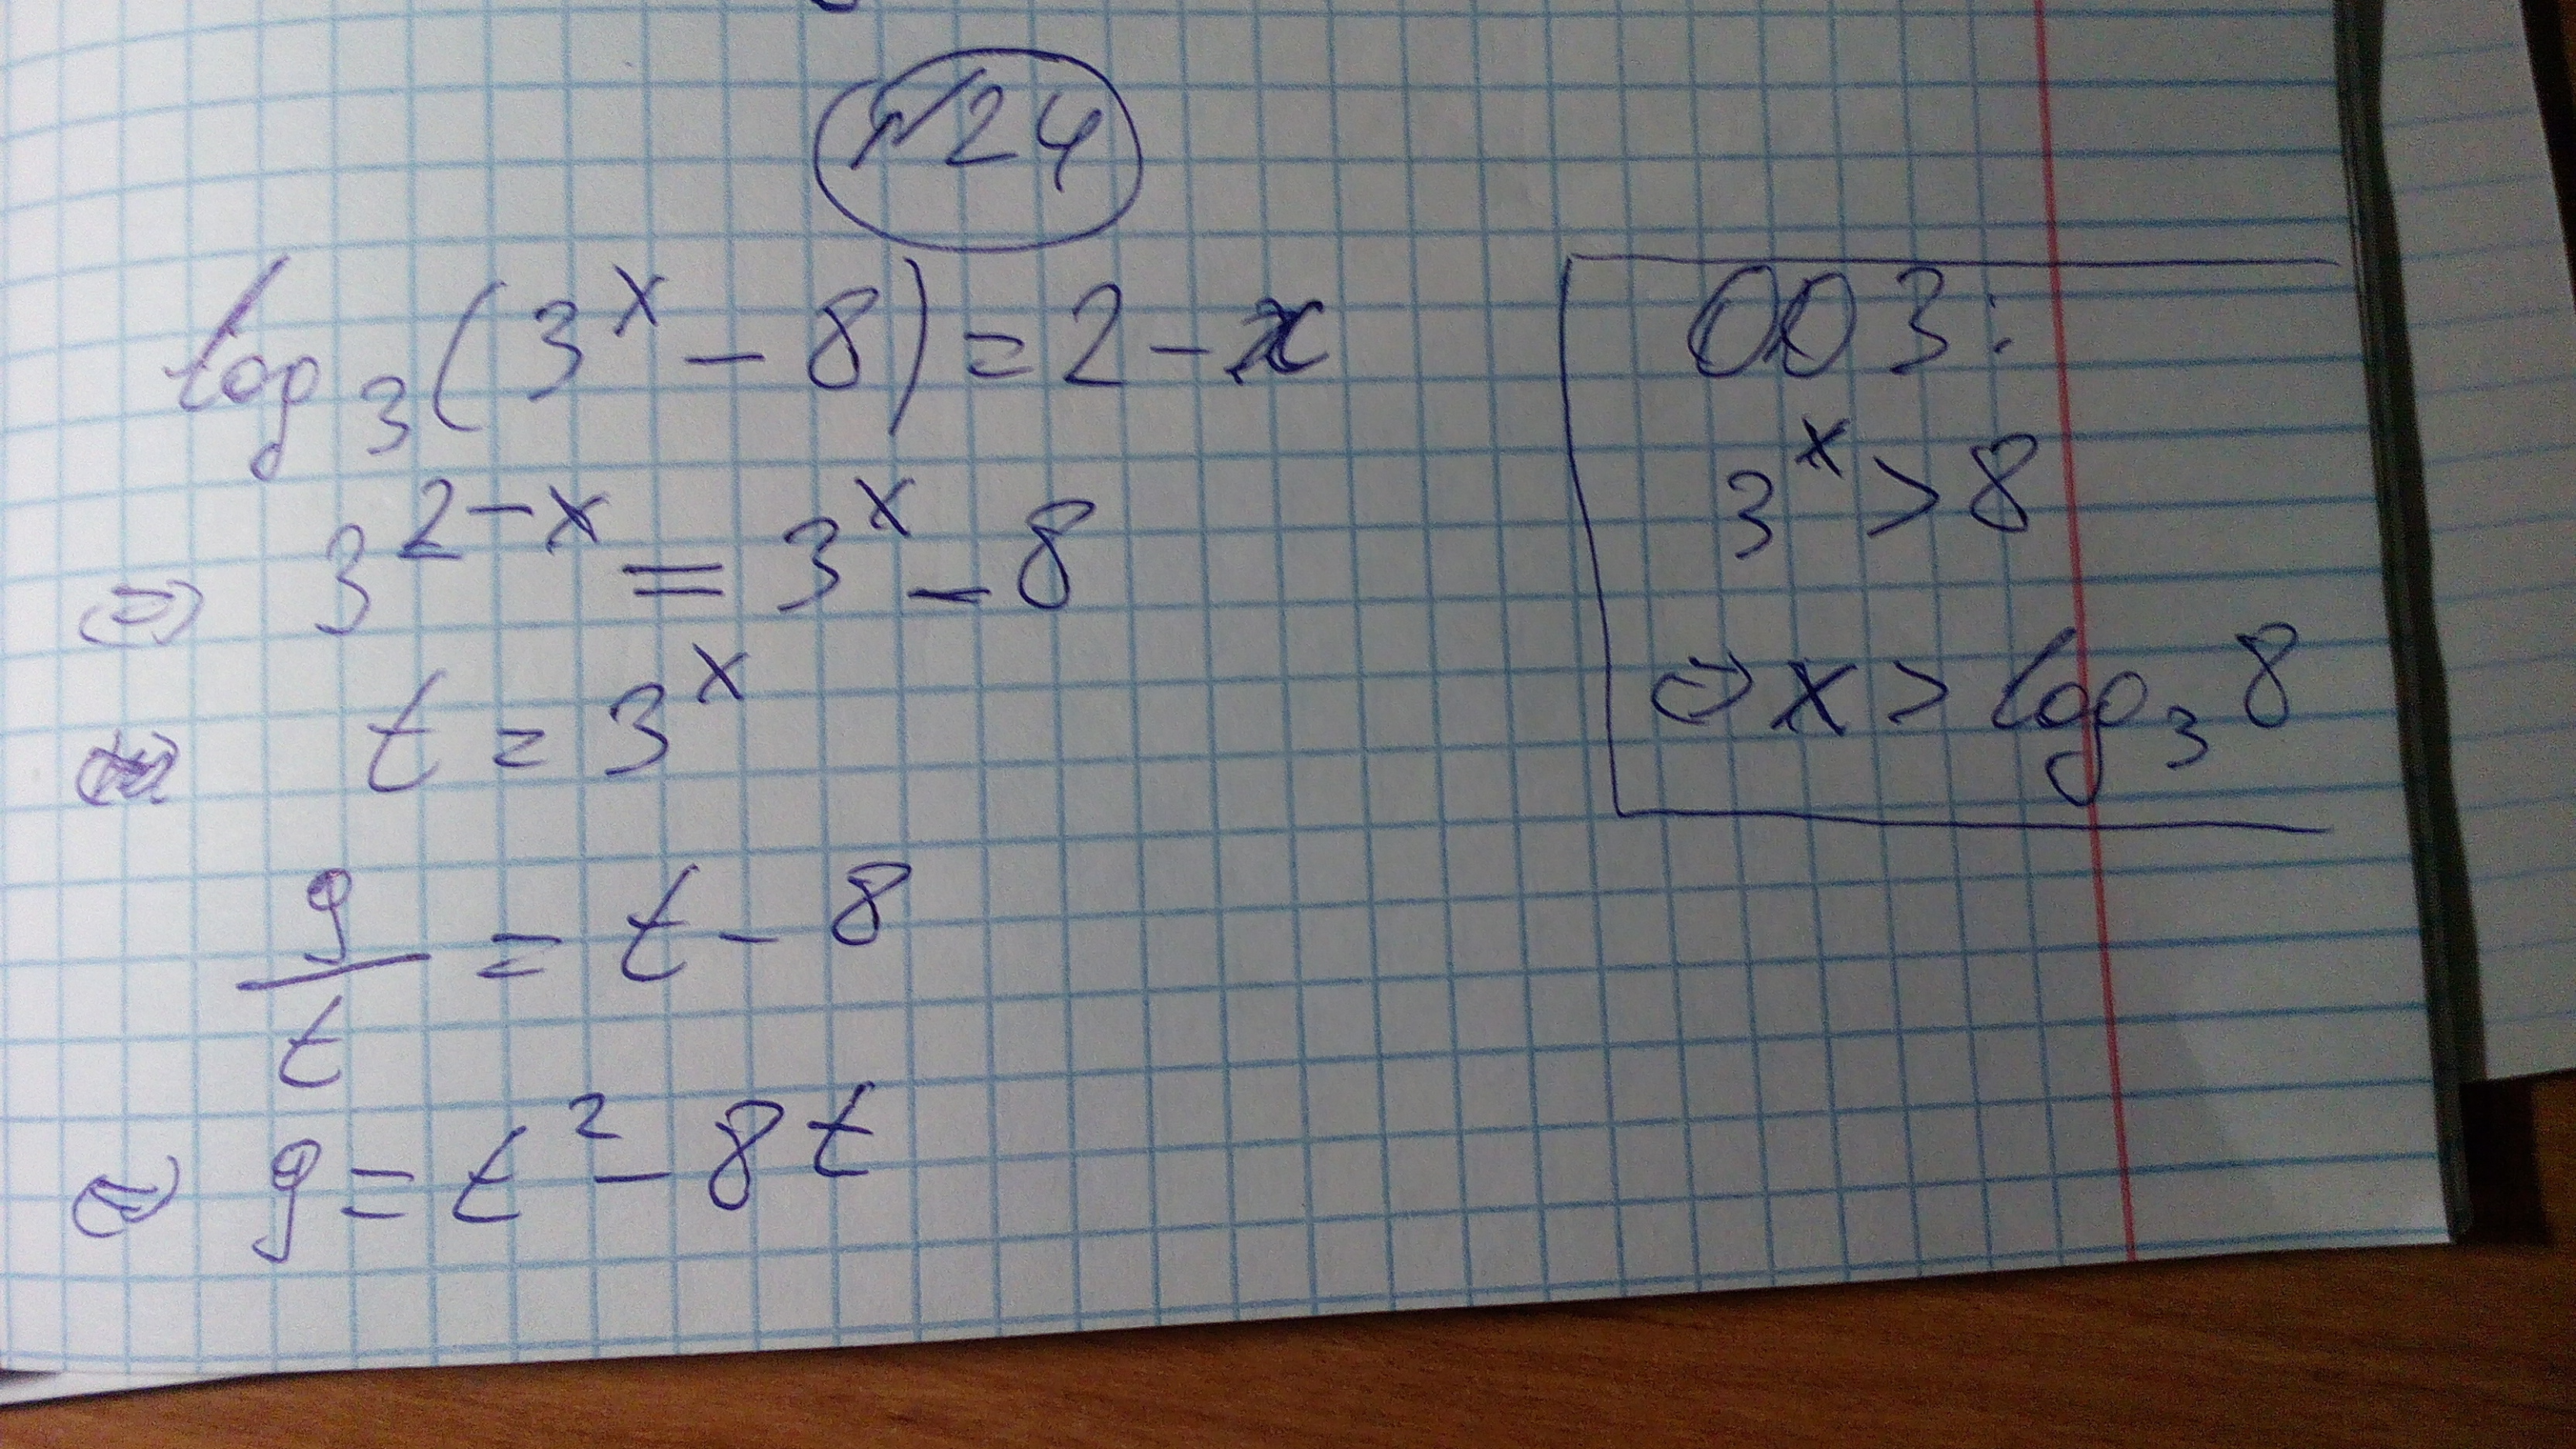 №24
log₃(3ˣ - 8) = 2 - x
⇔ 3²⁻ˣ = 3ˣ - 8
t = 3ˣ
9/t = t - 8
⇔ 9 = t² - 8t
ООЗ:
3ˣ > 8
⇔ x > log₃ 8